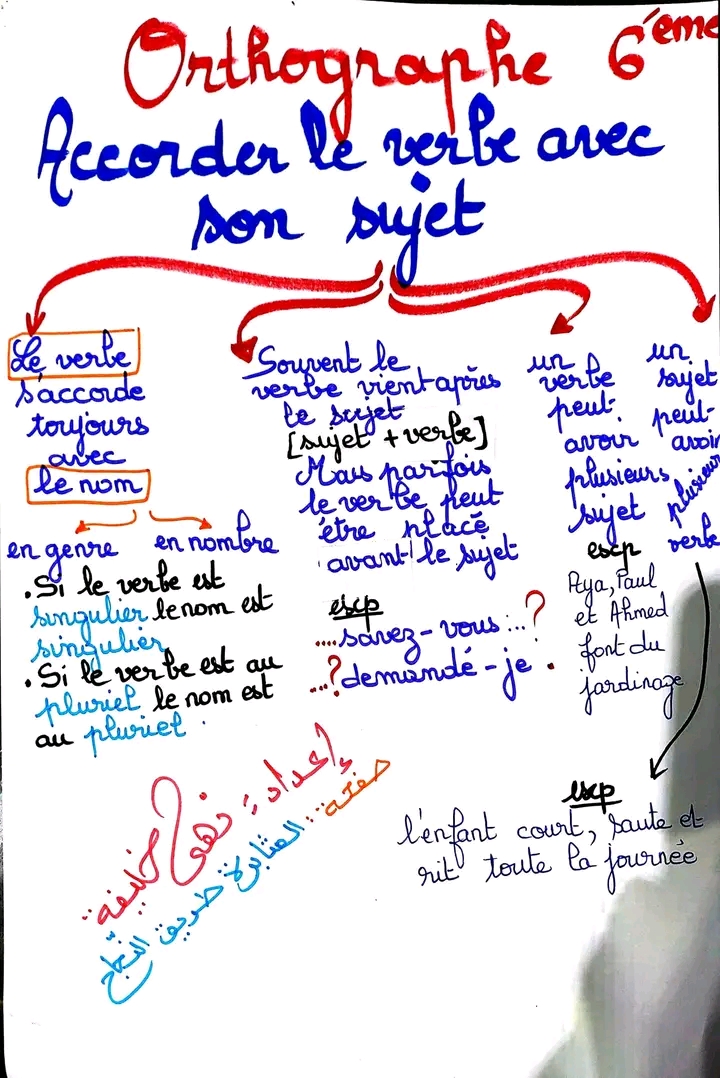 Orthographe 6ème
Accorder le verbe avec
son sujet
Le verbe
s'accorde
toujours
avec
le nom
en genre en nombre
. Si le verbe est
singulier le nom est
singulier
. Si le verbe est au
pluriel le nom est
au pluriel
Souvent le
verbe vient après
le sujet
[sujet + verbe]
Mais parfois
le verbe peut
être placé
avant le sujet
exp
....savez-vous...?
...? demandé-je.
un
verbe
peut
avoir
plusieurs
sujet
exp
Aya, Paul
et Ahmed
font du
jardinage
un
sujet
peut
avoir
plusieurs
verbe
exp
l'enfant court, saute et
rit toute la journée
إعداد: نهى خليفة
صفحة: المثابرة طريق النجاح